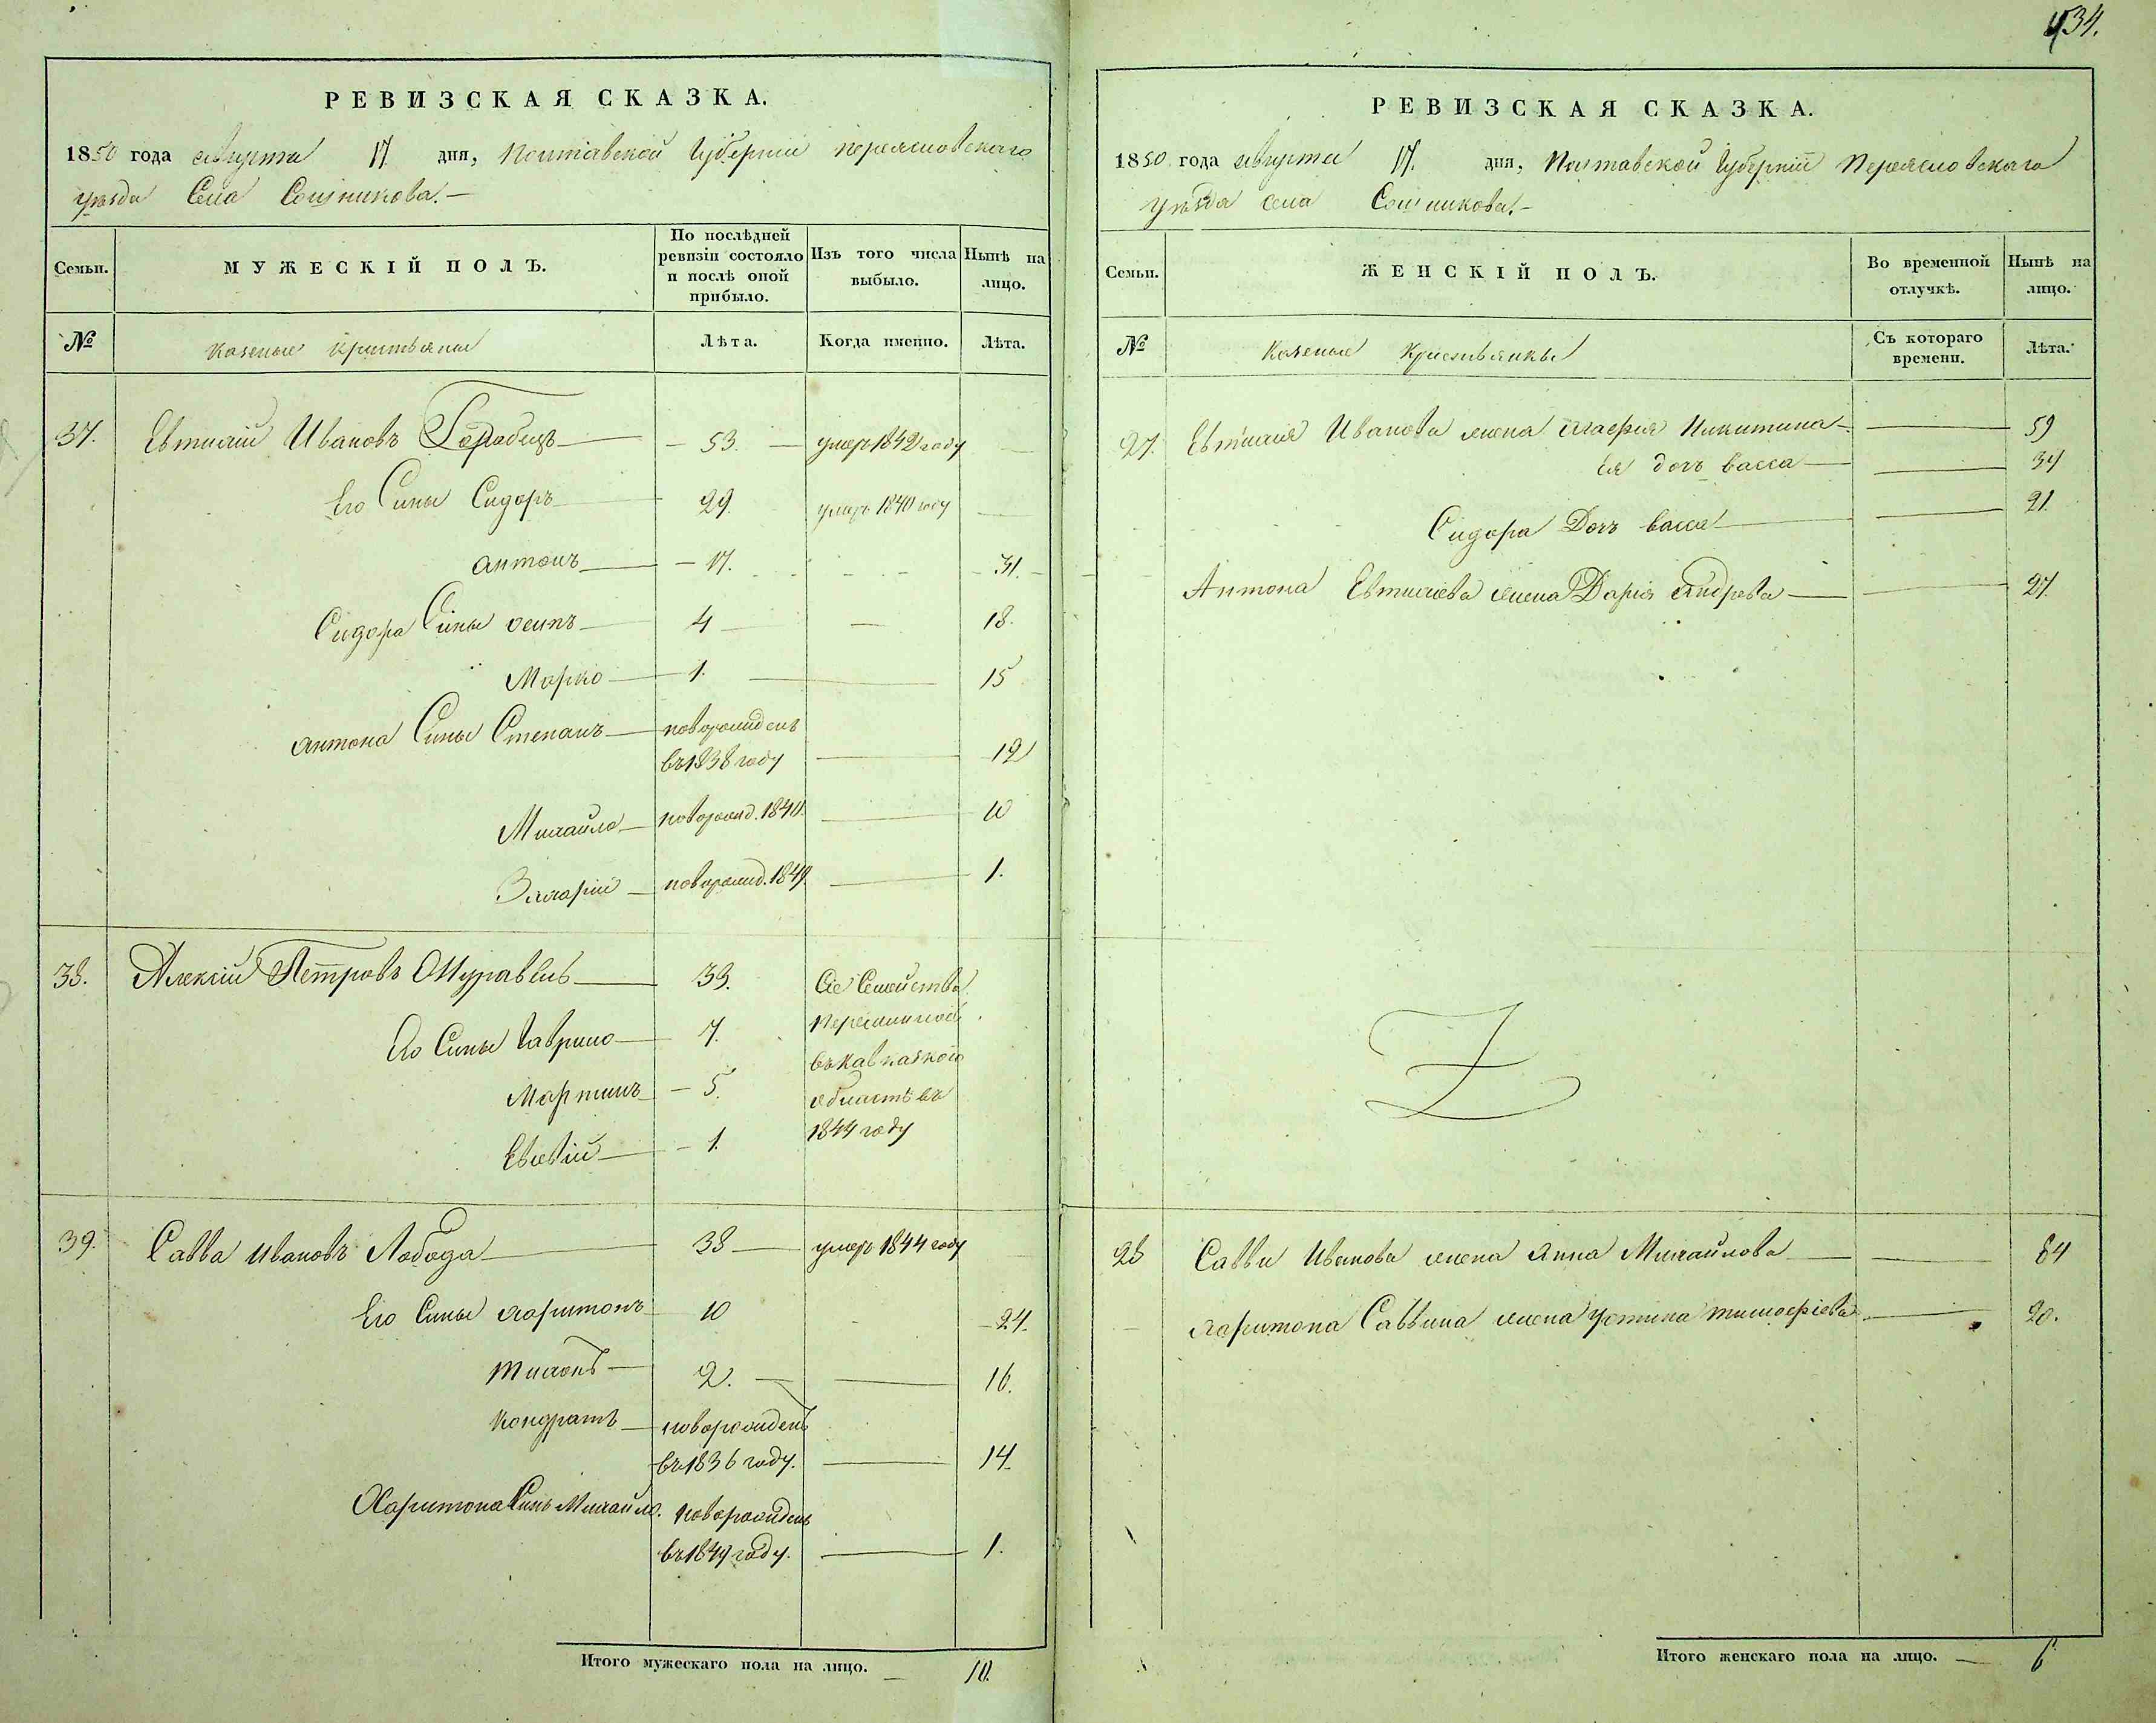 434.
РЕВИЗСКАЯ СКАЗКА.
1850 года августа 17 дня, Полтавской Губерніи переясловскаго
уѣзда Села Сошникова.
Семьи.
МУЖЕСКІЙ ПОЛЪ.
По послѣдней ревизіи состояло и послѣ оной прибыло.
Изъ того числа выбыло.
Нынѣ на лицо.
№
казеные кристьяны
Лѣта.
Когда именно.
Лѣта.
37. Евтихій Ивановъ 53. умеръ 1842 году
Его Сины Сидоръ 29. умеръ 1840 году
антонъ 17. 31.
Сидора Сины осипъ 4 18.
Марко 1. 15
антона Сины Степанъ новорожденъ
въ 1838 году 12
Михайло новорожд. 1840. 10
новорожд. 1849. 1.
38. Алексій Петровъ Журавель 33. Сіе Семейства
Его Сины Гаврило 7.
въ кавказкою
Мартинъ 5. область въ
1844 году
Евсевій 1.
39. Савва ивановъ Лобода 38 умеръ 1844 году
Его Сины харитонъ 10 24.
тихонъ 2. 16.
кондратъ новорожденъ
въ 1836 году. 14.
Харитона Синъ Михайло. новорожденъ
въ 1849 году. 1.
Итого мужескаго пола на лицо. 10.
РЕВИЗСКАЯ СКАЗКА.
1850 года августа 17. дня, Полтавской Губерніи Переясловскаго
уѣзда села Сошникова.
Семьи.
ЖЕНСКІЙ ПОЛЪ.
Во временной отлучкѣ.
Нынѣ на лицо.
№
Казеные
Съ котораго времени.
Лѣта.
27. Евтихия Иванова жена Никитина 59
ея дочъ васса 34
Сидора Дочъ васса 21.
Антона Евтихіева жена Дарія 27.
28 Саввы Иванова жена Анна Михайлова 64
харитона Саввина жена Устина тимофіева 20.
Итого женскаго пола на лицо. 6